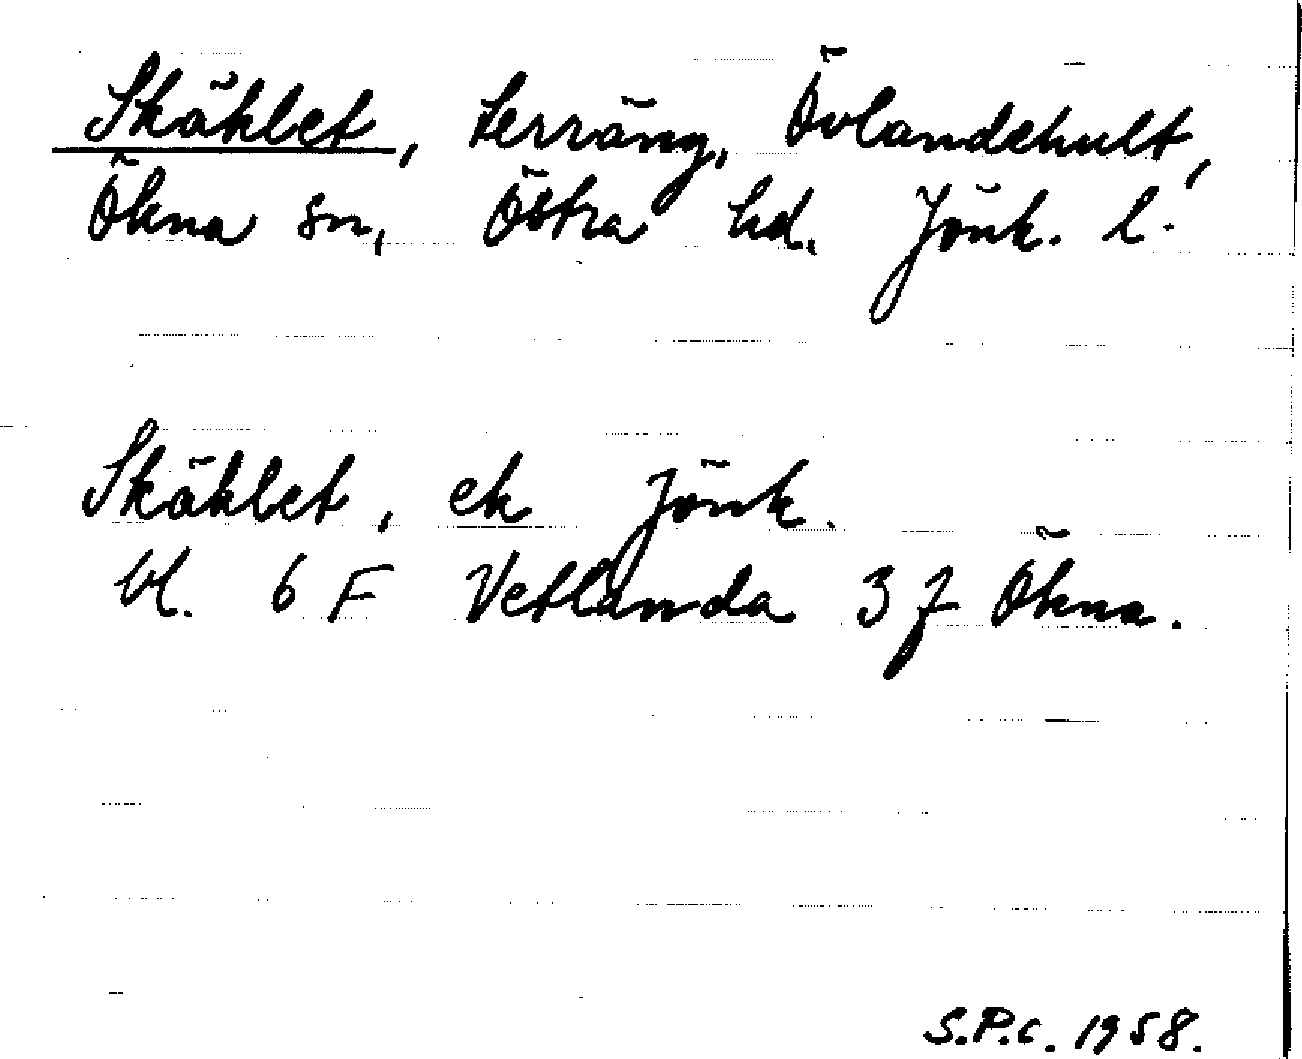 Skäklet, terräng, Övlandehult,
Ökna sn, Östra hd. Jönk. l.
Skäklet, ek Jönk.
bl. 6 F Vetlanda 3 f Ökna.
S.P.C. 1958.